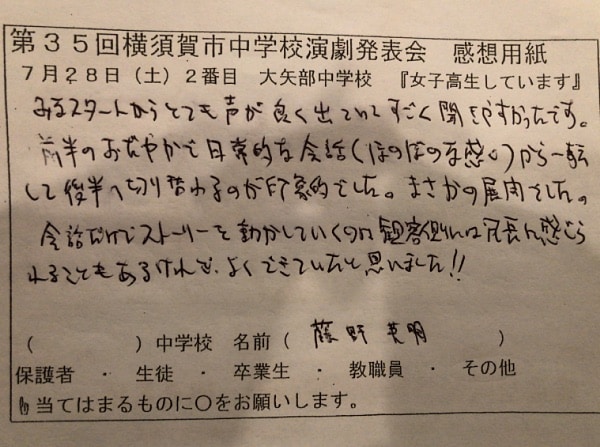 第35回横須賀市中学校演劇発表会 感想用紙
7月28日(土)2番目 大矢部中学校 『女子高生しています』
みるスタートからとても声が良く出ていてすごく聞きやすかったです。
前半のおだやかで日常的な会話(ほのぼのな感じ)から一転
して後半へ切り替わるのが印象的でした。まさかの展開でした。
会話だけでストーリーを動かしていくのは観客側には冗長に感じら
れることもあるけれど、よくできていたと思いました!!
( )中学校 名前( 藤野英明 )
保護者 ・ 生徒 ・ 卒業生 ・ 教職員 ・ その他
当てはまるものに○をお願いします。